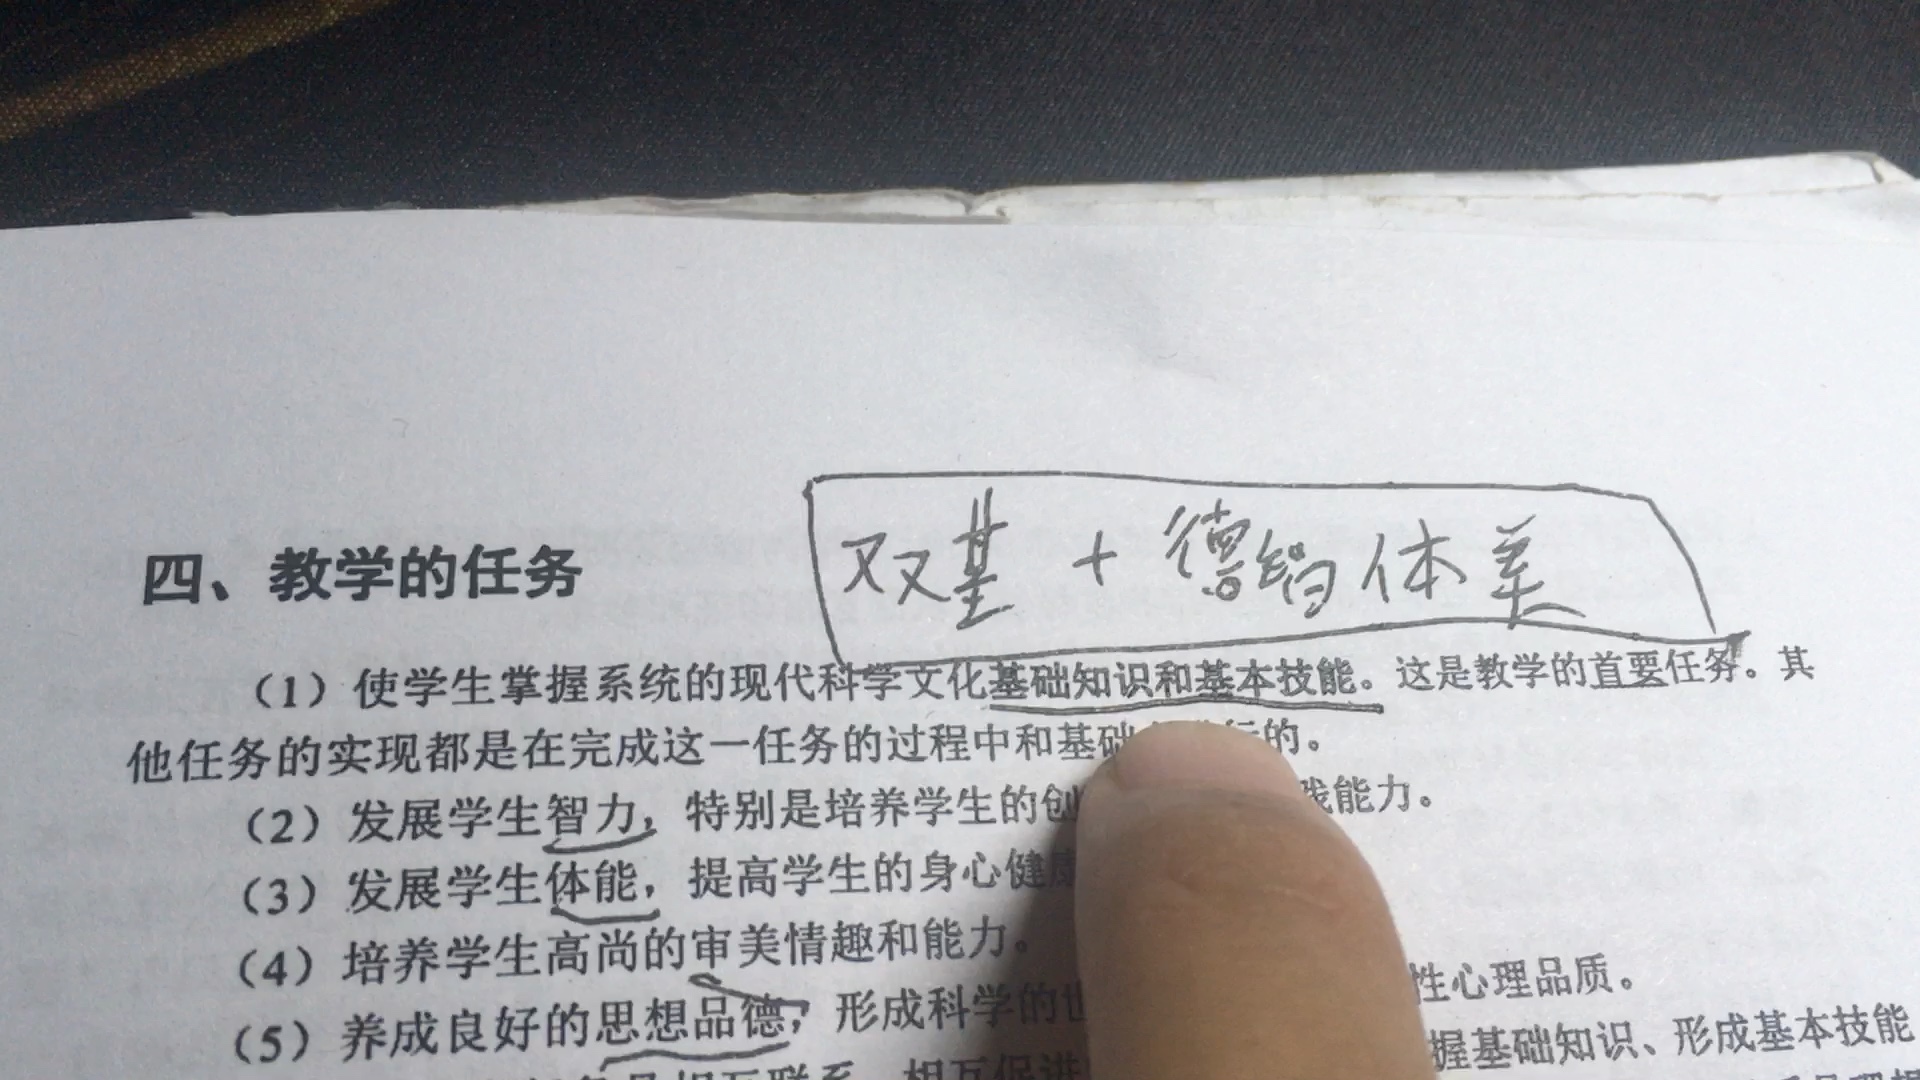 双基+德智体美
四、教学的任务
（1）使学生掌握系统的现代科学文化基础知识和基本技能。这是教学的首要任务。其
他任务的实现都是在完成这一任务的过程中和基础 的。
（2）发展学生智力，特别是培养学生的创 能力。
（3）发展学生体能，提高学生的身心健康
（4）培养学生高尚的审美情趣和能力。
（5）养成良好的思想品德，形成科学的世 性心理品质。
相互联系、相互促进 握基础知识、形成基本技能